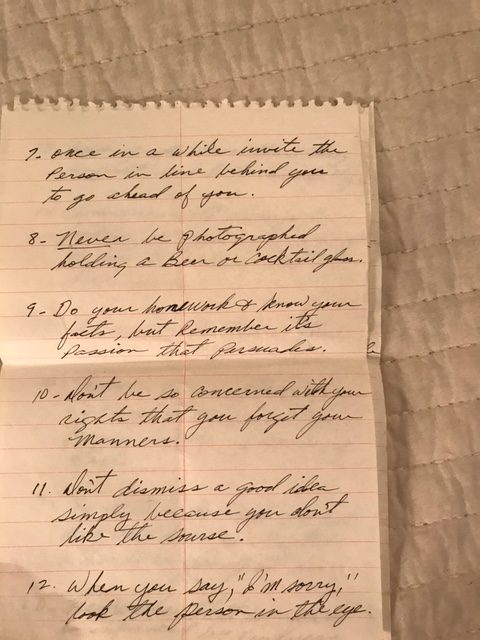 7- once in a while invite the
Person in line behind you
to go ahead of you.
8- Never be photographed
holding a Beer or cocktail glass.
9- Do your homework & know your
facts, but Remember it's
Passion that Persuades.
10- Don't be so concerned with your
rights that you forget your
Manners.
11. Don't dismiss a good idea
simply because you don't
like the sourse.
12. When you say, "I'm sorry,"
look the person in the eye.